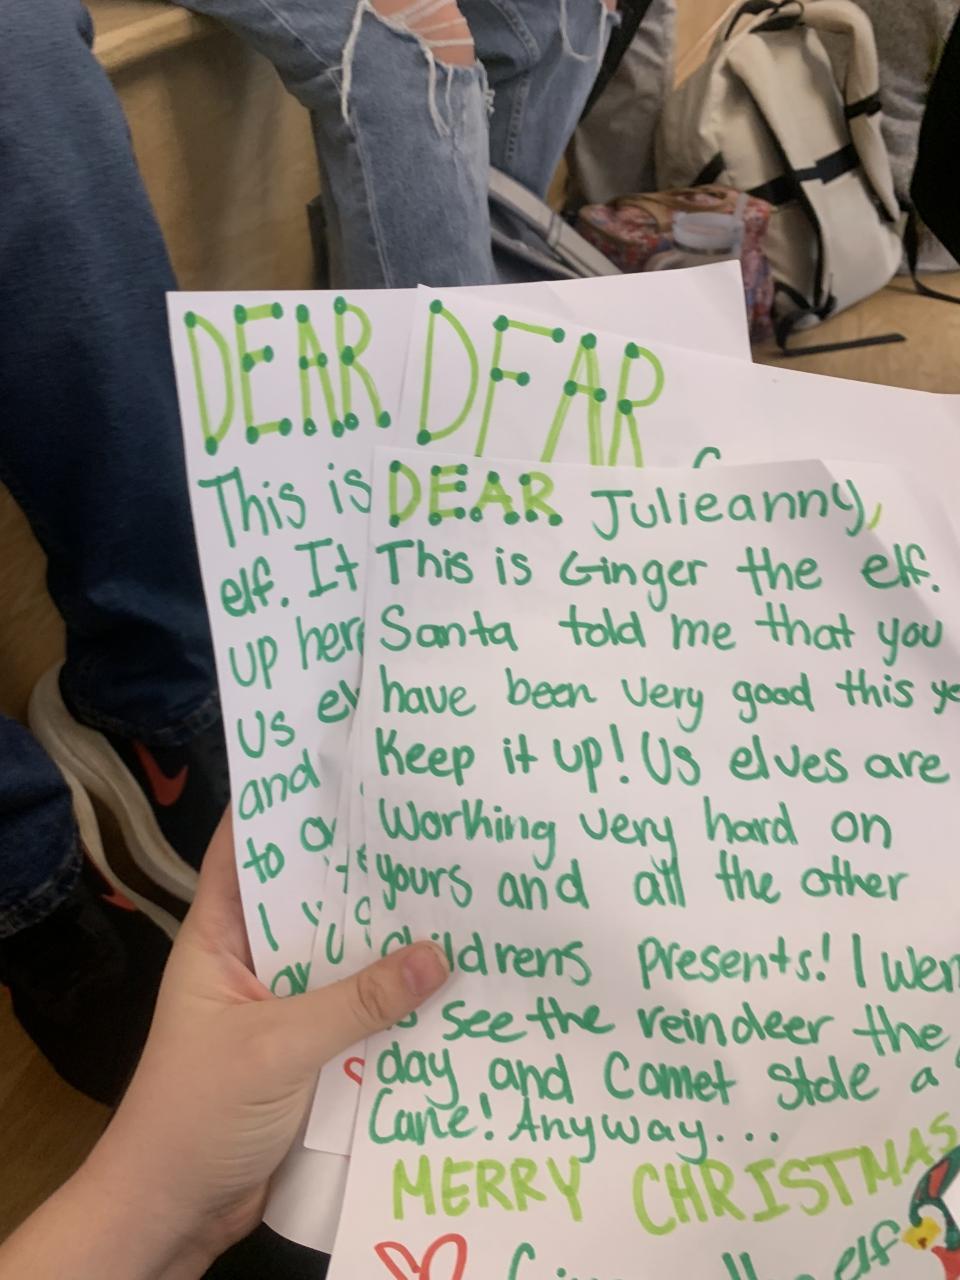 DEAR
This is
elf. It
up here
us
and
to
I
DEAR
DEAR Julieanny,
This is Ginger the elf.
Santa told me that you
have been very good this
Keep it up! Us elves are
Working very hard on
yours and all the other
childrens presents! I
see the reindeer the
day and Comet stole a
Cane! Anyway...
MERRY CHRISTMAS
elf